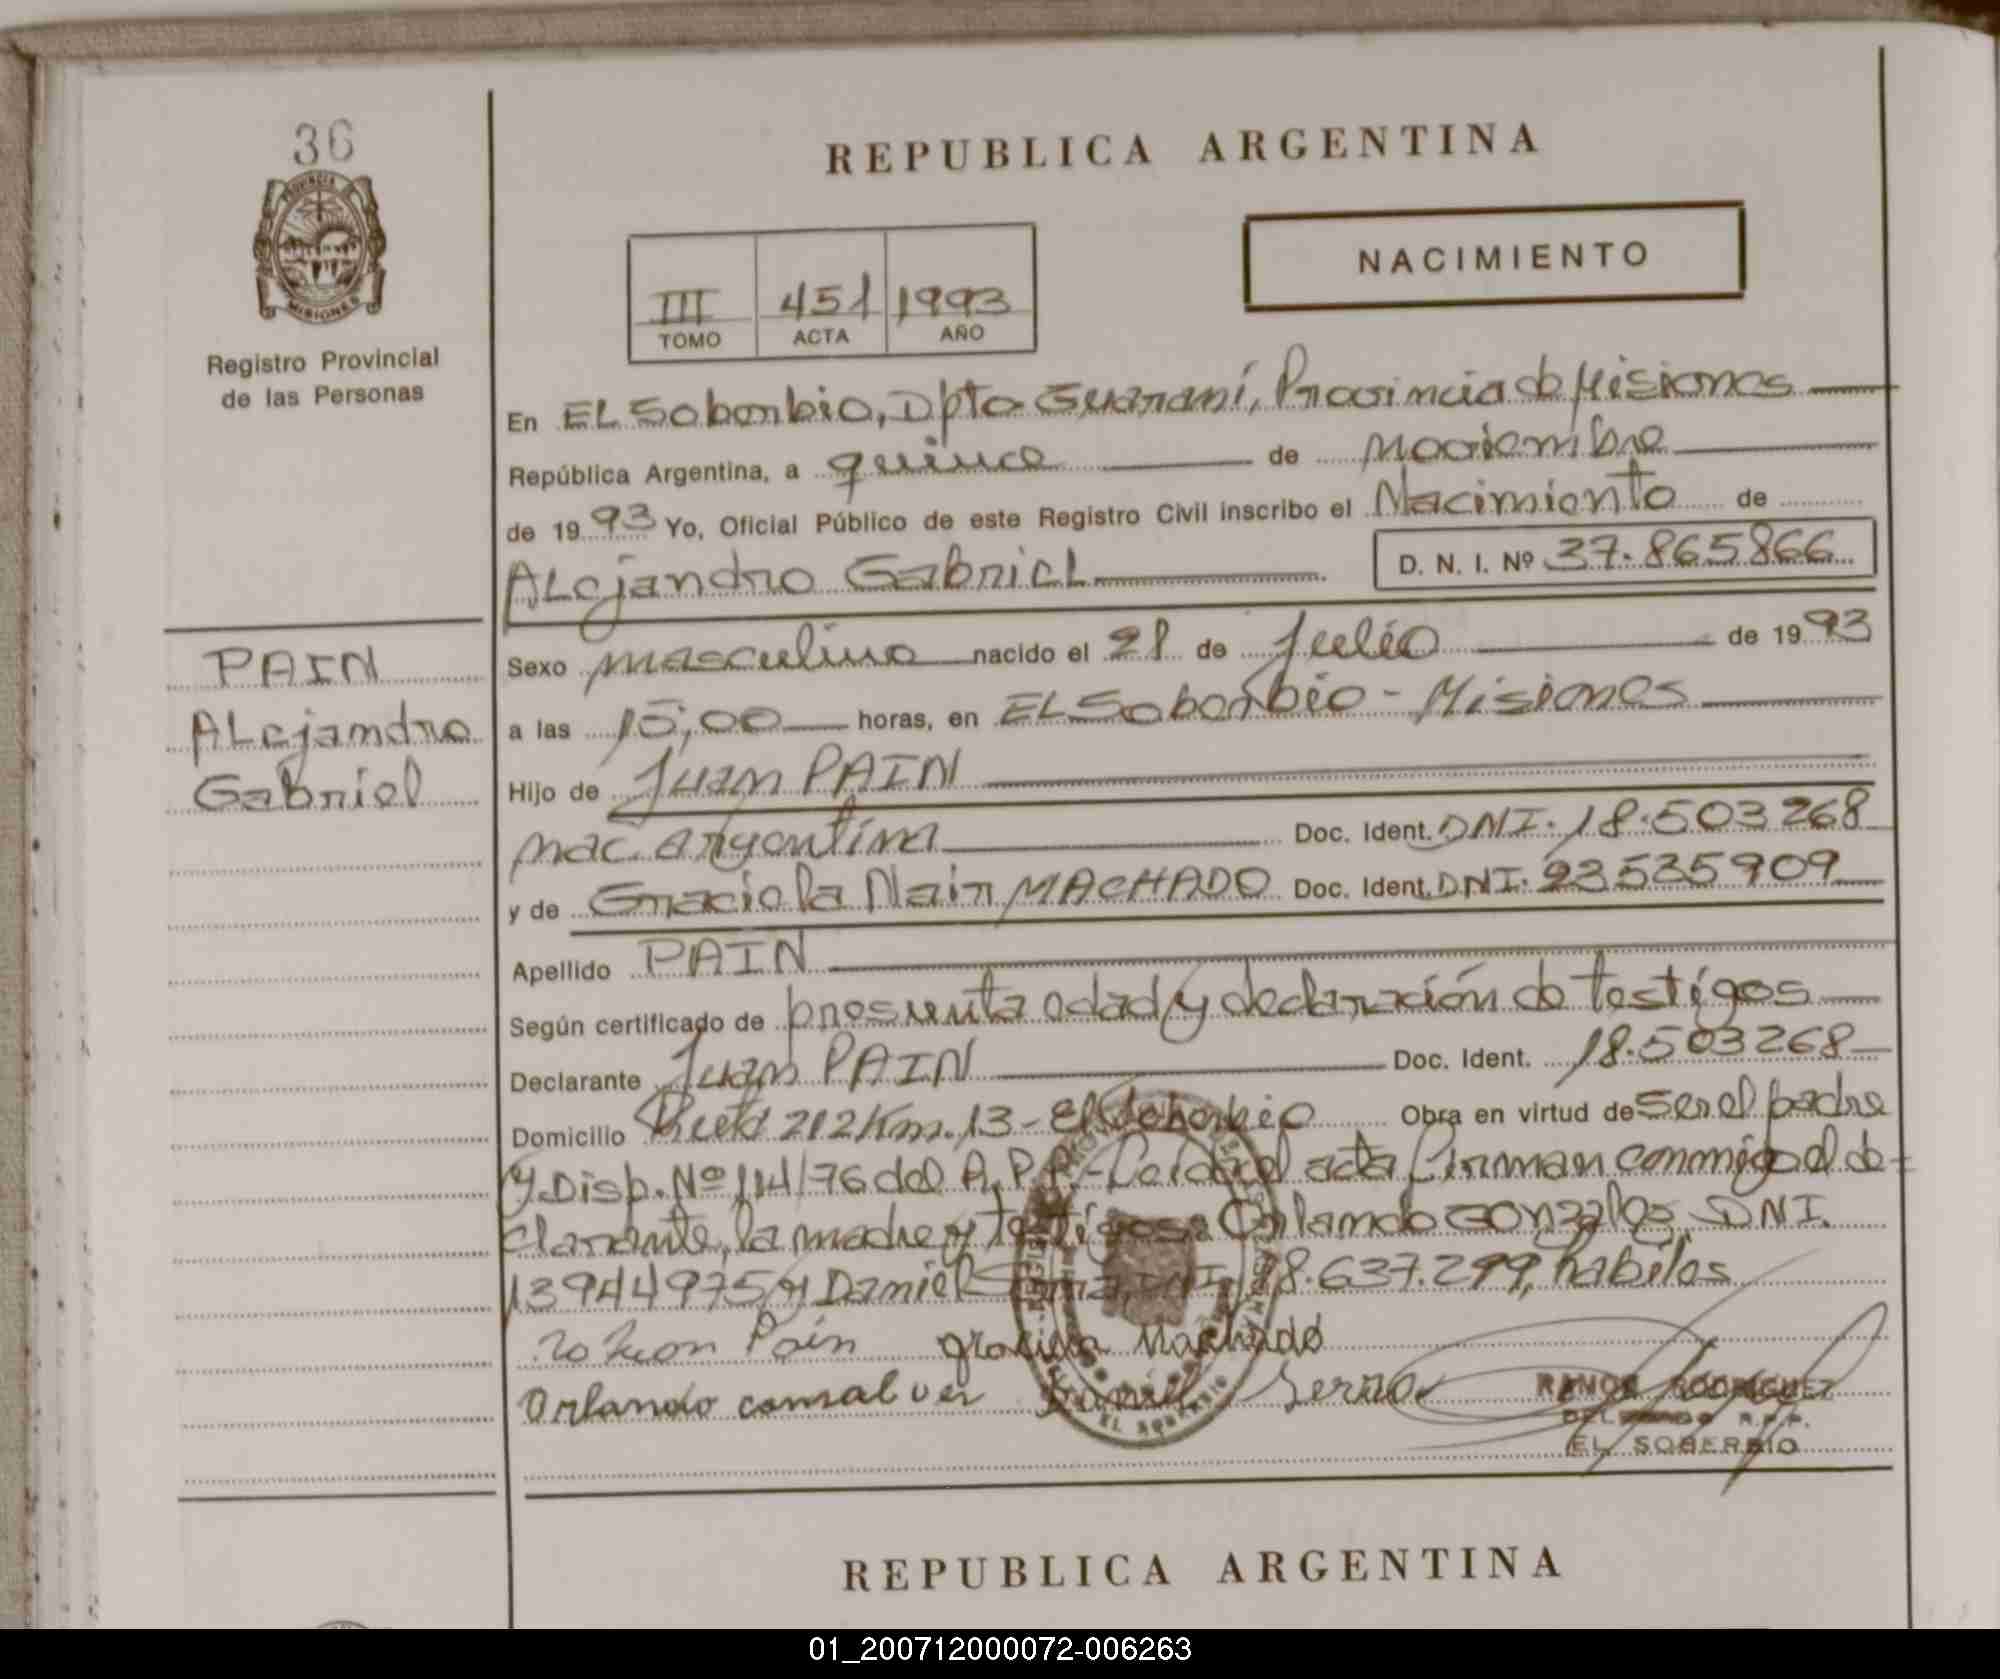 36
PROVINCIA DE
MISIONES
Registro Provincial
de las Personas
REPUBLICA ARGENTINA
III 451 1993
TOMO ACTA AÑO
NACIMIENTO
En EL Soberbio, Dpto Guaraní, Provincia de Misiones
República Argentina, a quince de noviembre
de 1993 Yo, Oficial Público de este Registro Civil inscribo el Nacimiento de
Alejandro Gabriel D. N. I. Nº 37.865866
PAIN
Alejandro
Gabriel
Sexo masculino nacido el 21 de Julio de 1993
a las 15,00 horas, en EL Soberbio - Misiones
Hijo de Juan PAIN
nac. argentina Doc. Ident. DNI. 18.503268
y de Graciela Nair MACHADO Doc. Ident. DNI. 23535909
Apellido PAIN
Según certificado de presunta edad y declaración de testigos
Declarante Juan PAIN Doc. Ident. 18.503268
Domicilio Ruta 212 Km. 13 - El Soberbio Obra en virtud de ser el padre
y Disp. Nº 114/76 del R.P.P.- Leída el acta firman conmigo el de-
clarante, la madre y testigos: Orlando Gonzalez DNI.
13944975 y Daniel DNI. 18.637.299, habiles
Juan Pain graciela Machado
Orlando consalves Daniel
RAMON RODRIGUEZ
DELEGADO R.P.P.
EL SOBERBIO
EL SOBERBIO
REPUBLICA ARGENTINA
01_200712000072-006263